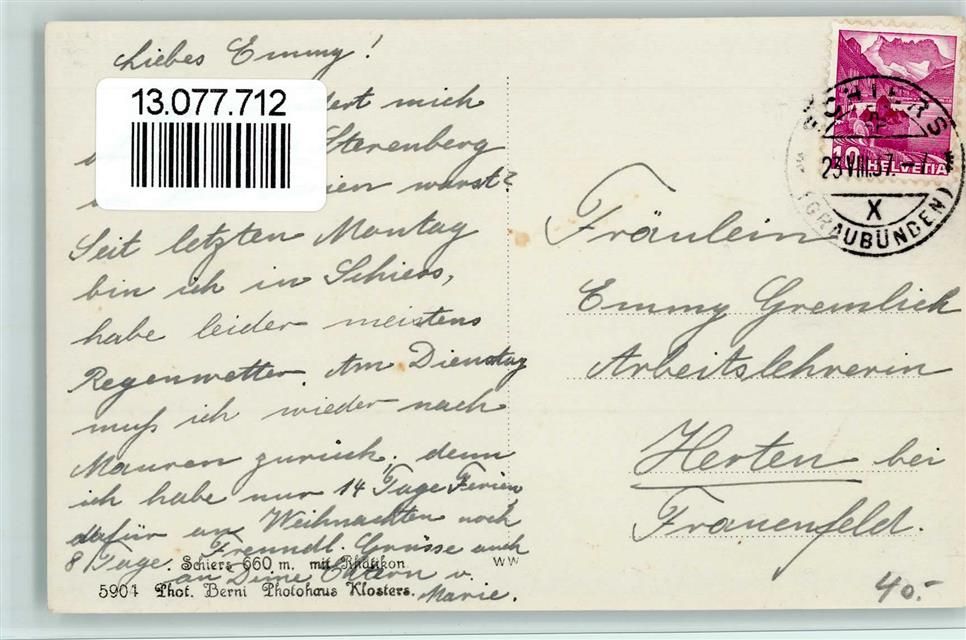 Liebes Emmy!
13.077.712
mich
Sterenberg
warst?
Seit letzten Montag
bin ich in Schiers,
habe leider meistens
Regenwetter. Am Dienstag
muß ich wieder nach
Mauren zurück, denn
ich habe nur 14 Tage Ferien
dafür an Weihnachten noch
8 Tage. Freundl. Grüsse auch
an Deine Eltern v.
Marie.
Schiers 660 m. mit Rhätikon
WW
5904 Phot. Berni Photohaus Klosters.
SCHIERS
23.VIII.37.-7
X
(GRAUBÜNDEN)
10 HELVETIA
Fräulein
Emmy Gremlich
Arbeitslehrerin
Herten bei
Frauenfeld.
40.-